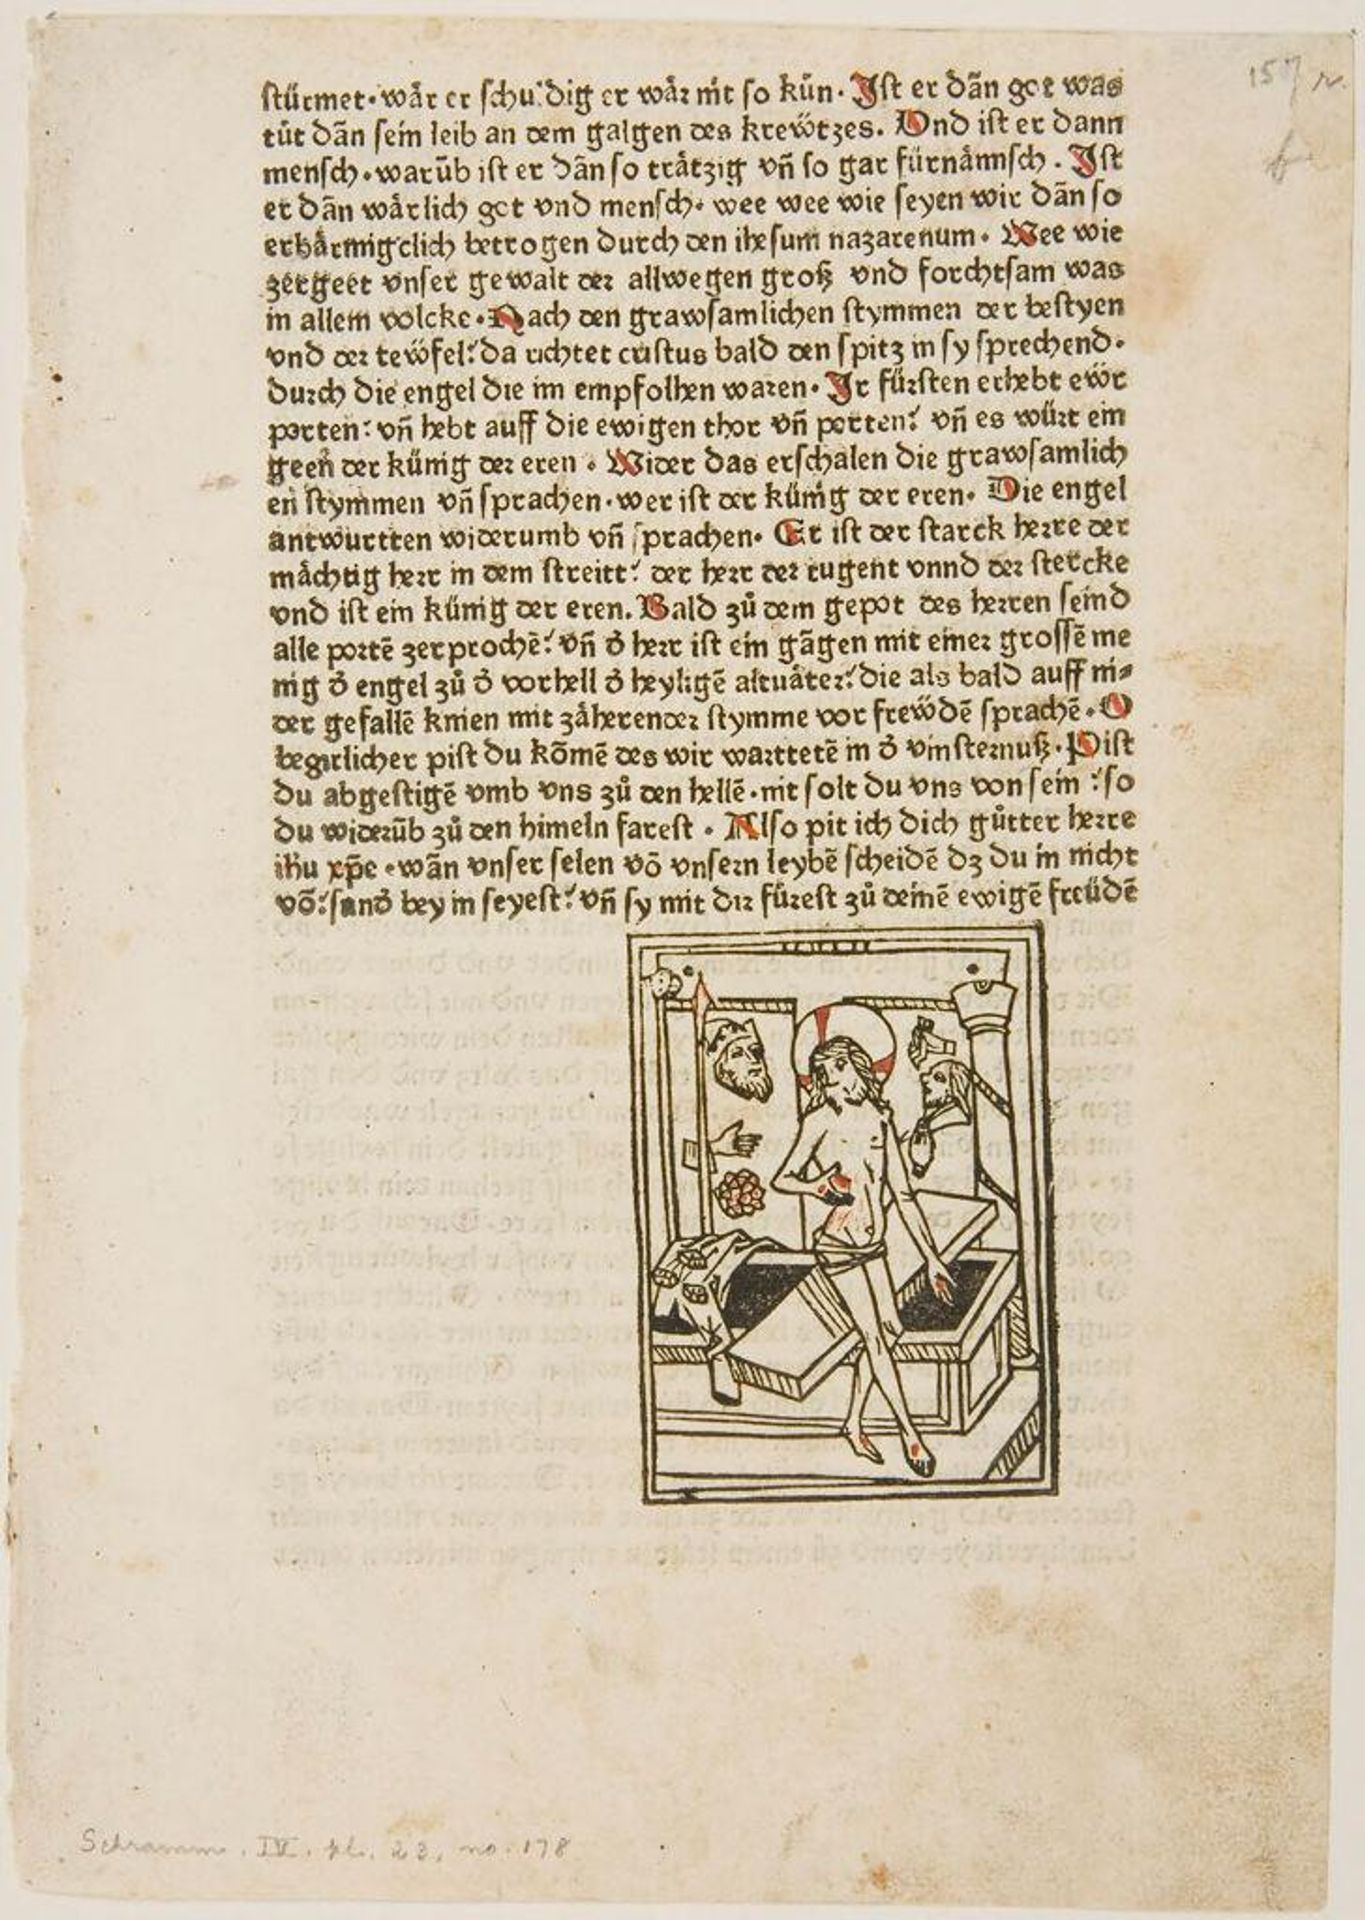 157 r.
stürmet·wär er schuldig er wär nit so kün· Ist er dãn got was
tüt dãn sein leib an dem galgen des krewtzes. Vnd ist er dann
mensch·warũb ist er dãn so trätzig vñ so gar fürnämisch. Ist
er dãn wärlich got vnd mensch· wee wee wie seyen wir dãn so
erbärmigclich betrogen durch den ihesum nazarenum· Wee wie
zergeet vnser gewalt der allwegen groß vnd forchtsam was
in allem volcke·Nach den grawsamlichen stymmen der bestyen
vnd der tewfel:da richtet cristus bald den spitz in sy sprechend·
durch die engel die im empfolhen waren· Ir fürsten erhebt ewr
porten: vñ hebt auff die ewigen thor vñ porten: vñ es würt ein
geen der künig der eren· Wider das erschalen die grawsamlich
en stymmen vñ sprachen·wer ist der künig der eren· Die engel
antwurtten widerumb vñ sprachen· Er ist der starck herre der
mächtig herr in dem streitt: der herr der tugent vnnd der stercke
vnd ist ein künig der eren. Bald zů dem gepot des herren seind
alle portẽ zerprochẽ: vñ ð herr ist ein gãgen mit einer grossẽ me
nig ð engel zů ð vorhell ð heyligẽ altuäter:die als bald auff ni⸗
der gefallẽ knien mit zäherender stymme vor frewdẽ sprachẽ·O
begirlicher pist du kõmẽ des wir warttetẽ in ð vinsternuß·Pist
du abgestigẽ vmb vns zů den hellẽ·nit solt du vns von sein :so
du widerũb zů den himeln farest· Also pit ich dich gůtter herre
ihu xp̃e·wãn vnser selen võ vnsern leybẽ scheidẽ dz du in nicht
võ:sunð bey in seyest: vñ sy mit dir fürest zů deinẽ ewigẽ freüdẽ
Schramm. IV. pl. 23, no. 178